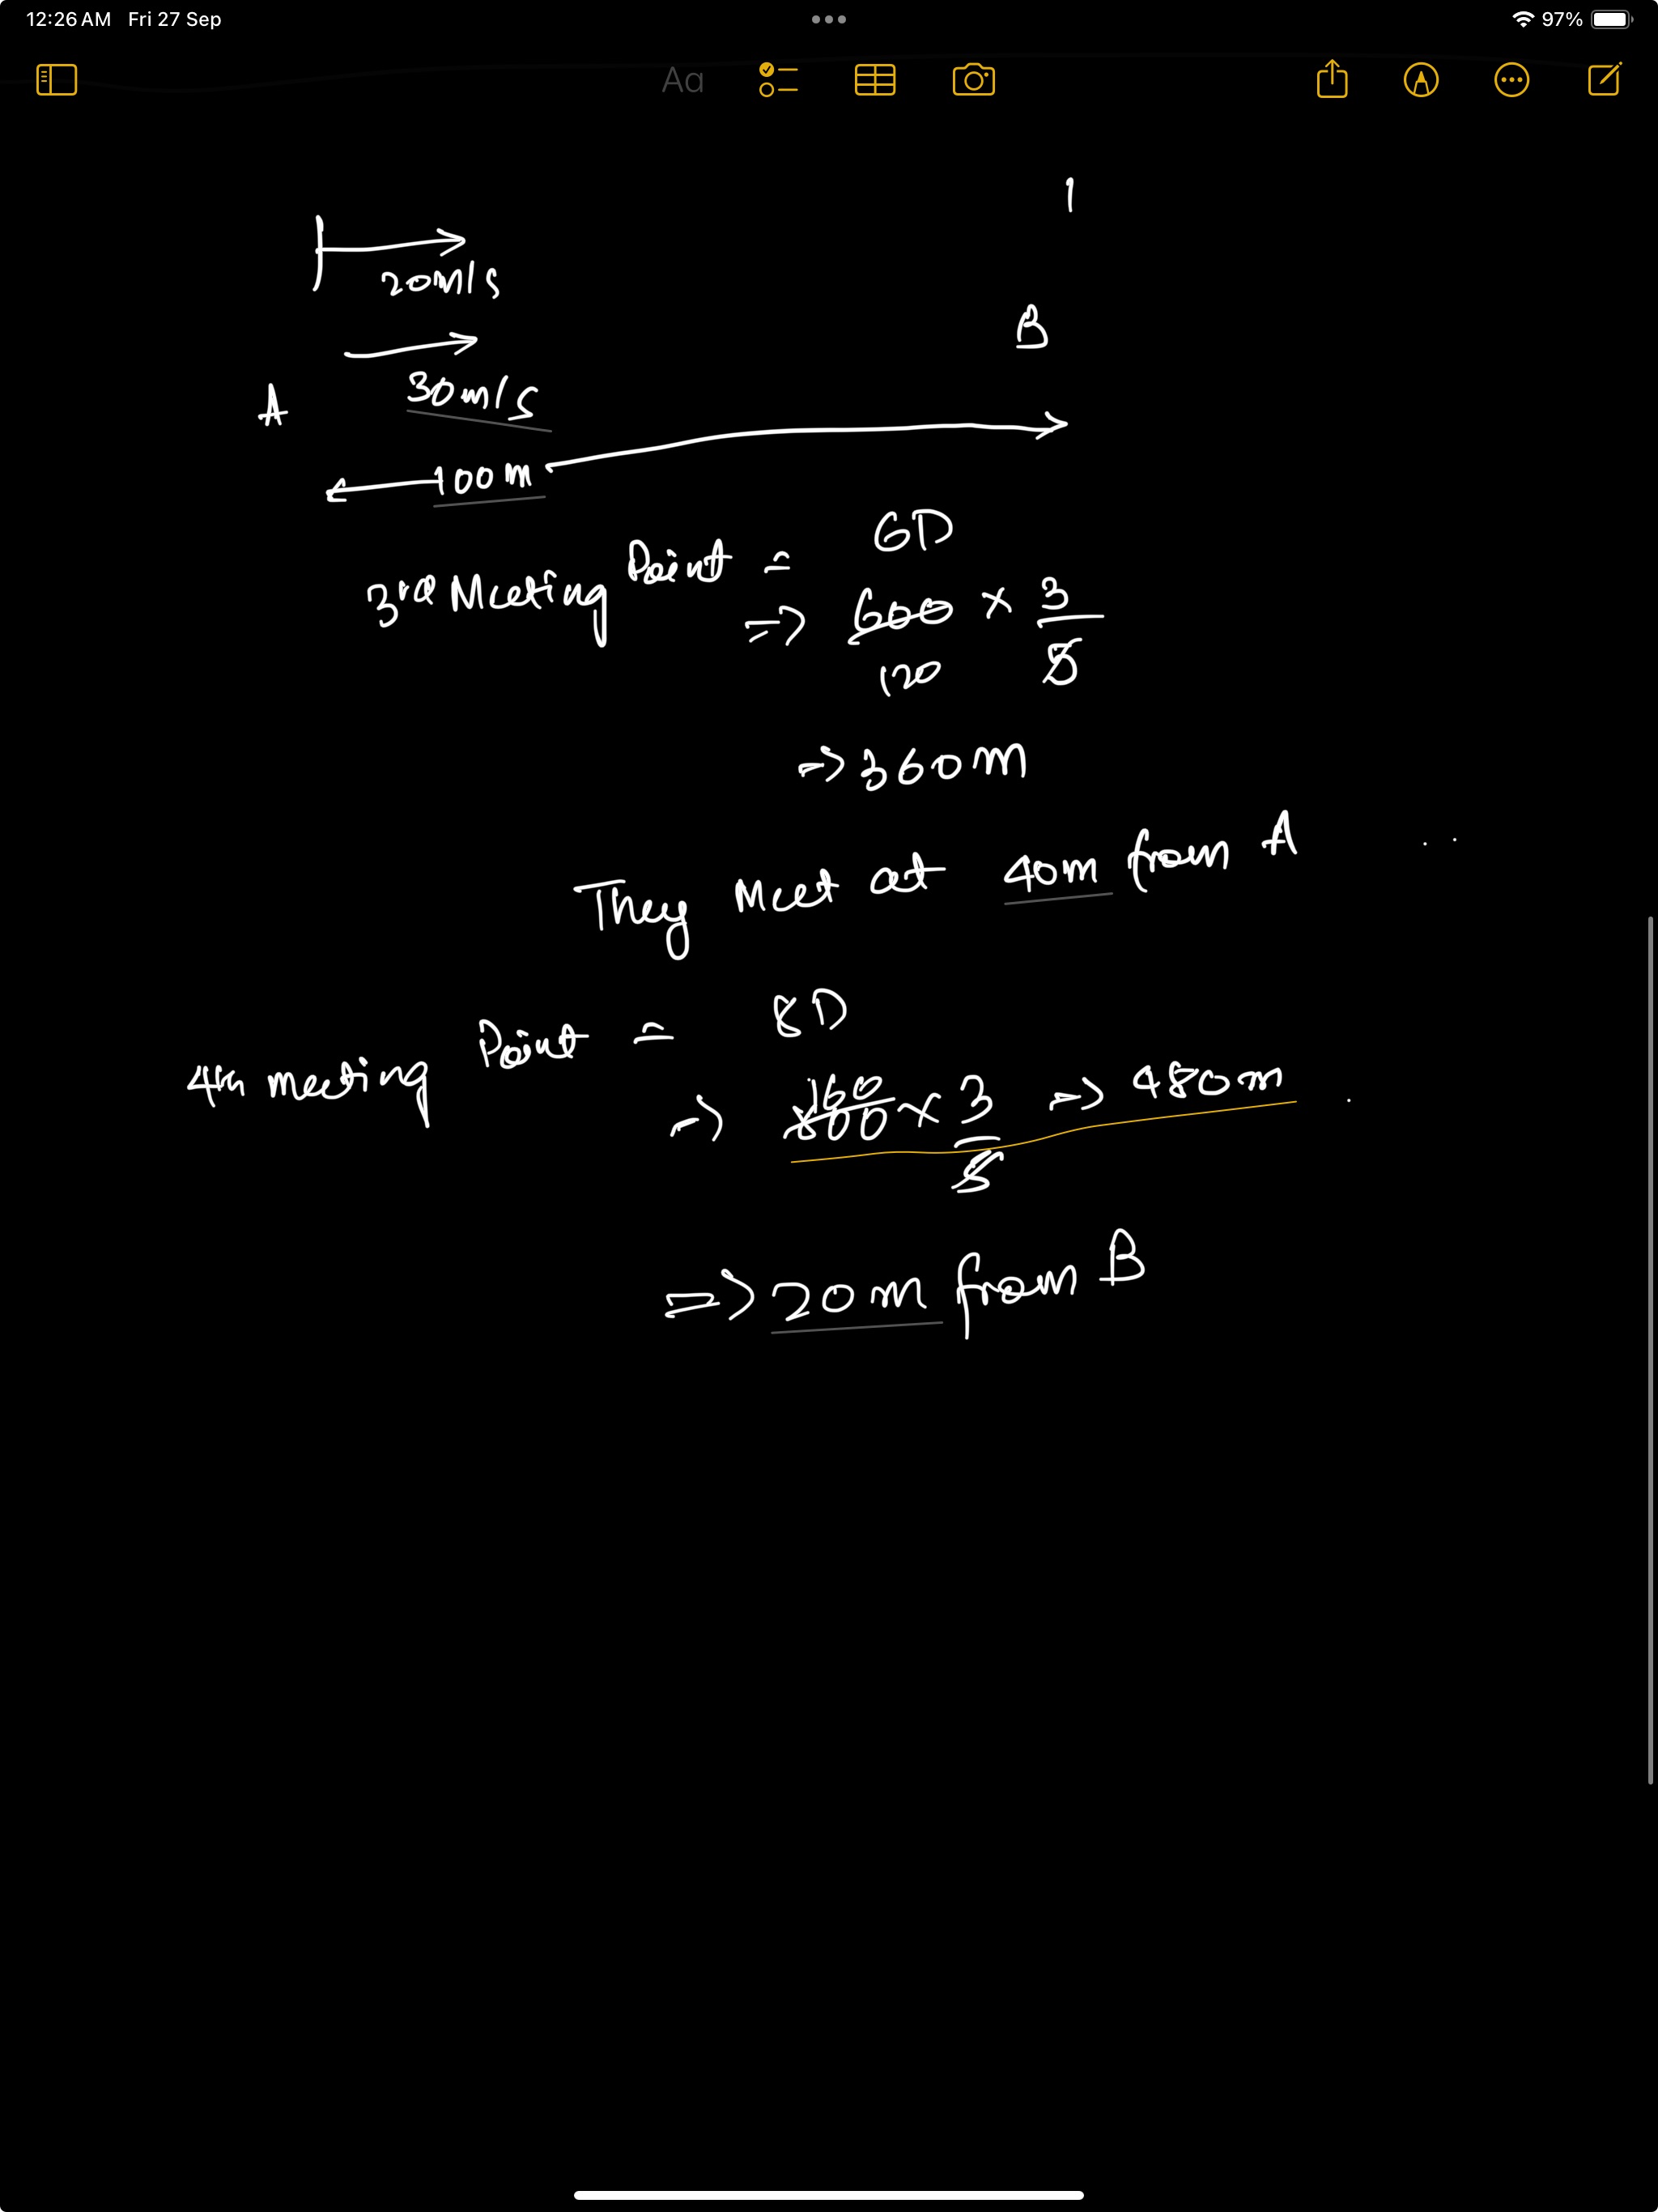 12:26 AM Fri 27 Sep
97%
Aa
20m/s
B
30m/s
A
100m
3rd Meeting Point = 6D
=> 600 × 3/5
120
=> 360m
They Meet at 40m from A
4th meeting Point = 8D
160
=> 800 × 3/5 => 480m
=> 20m from B